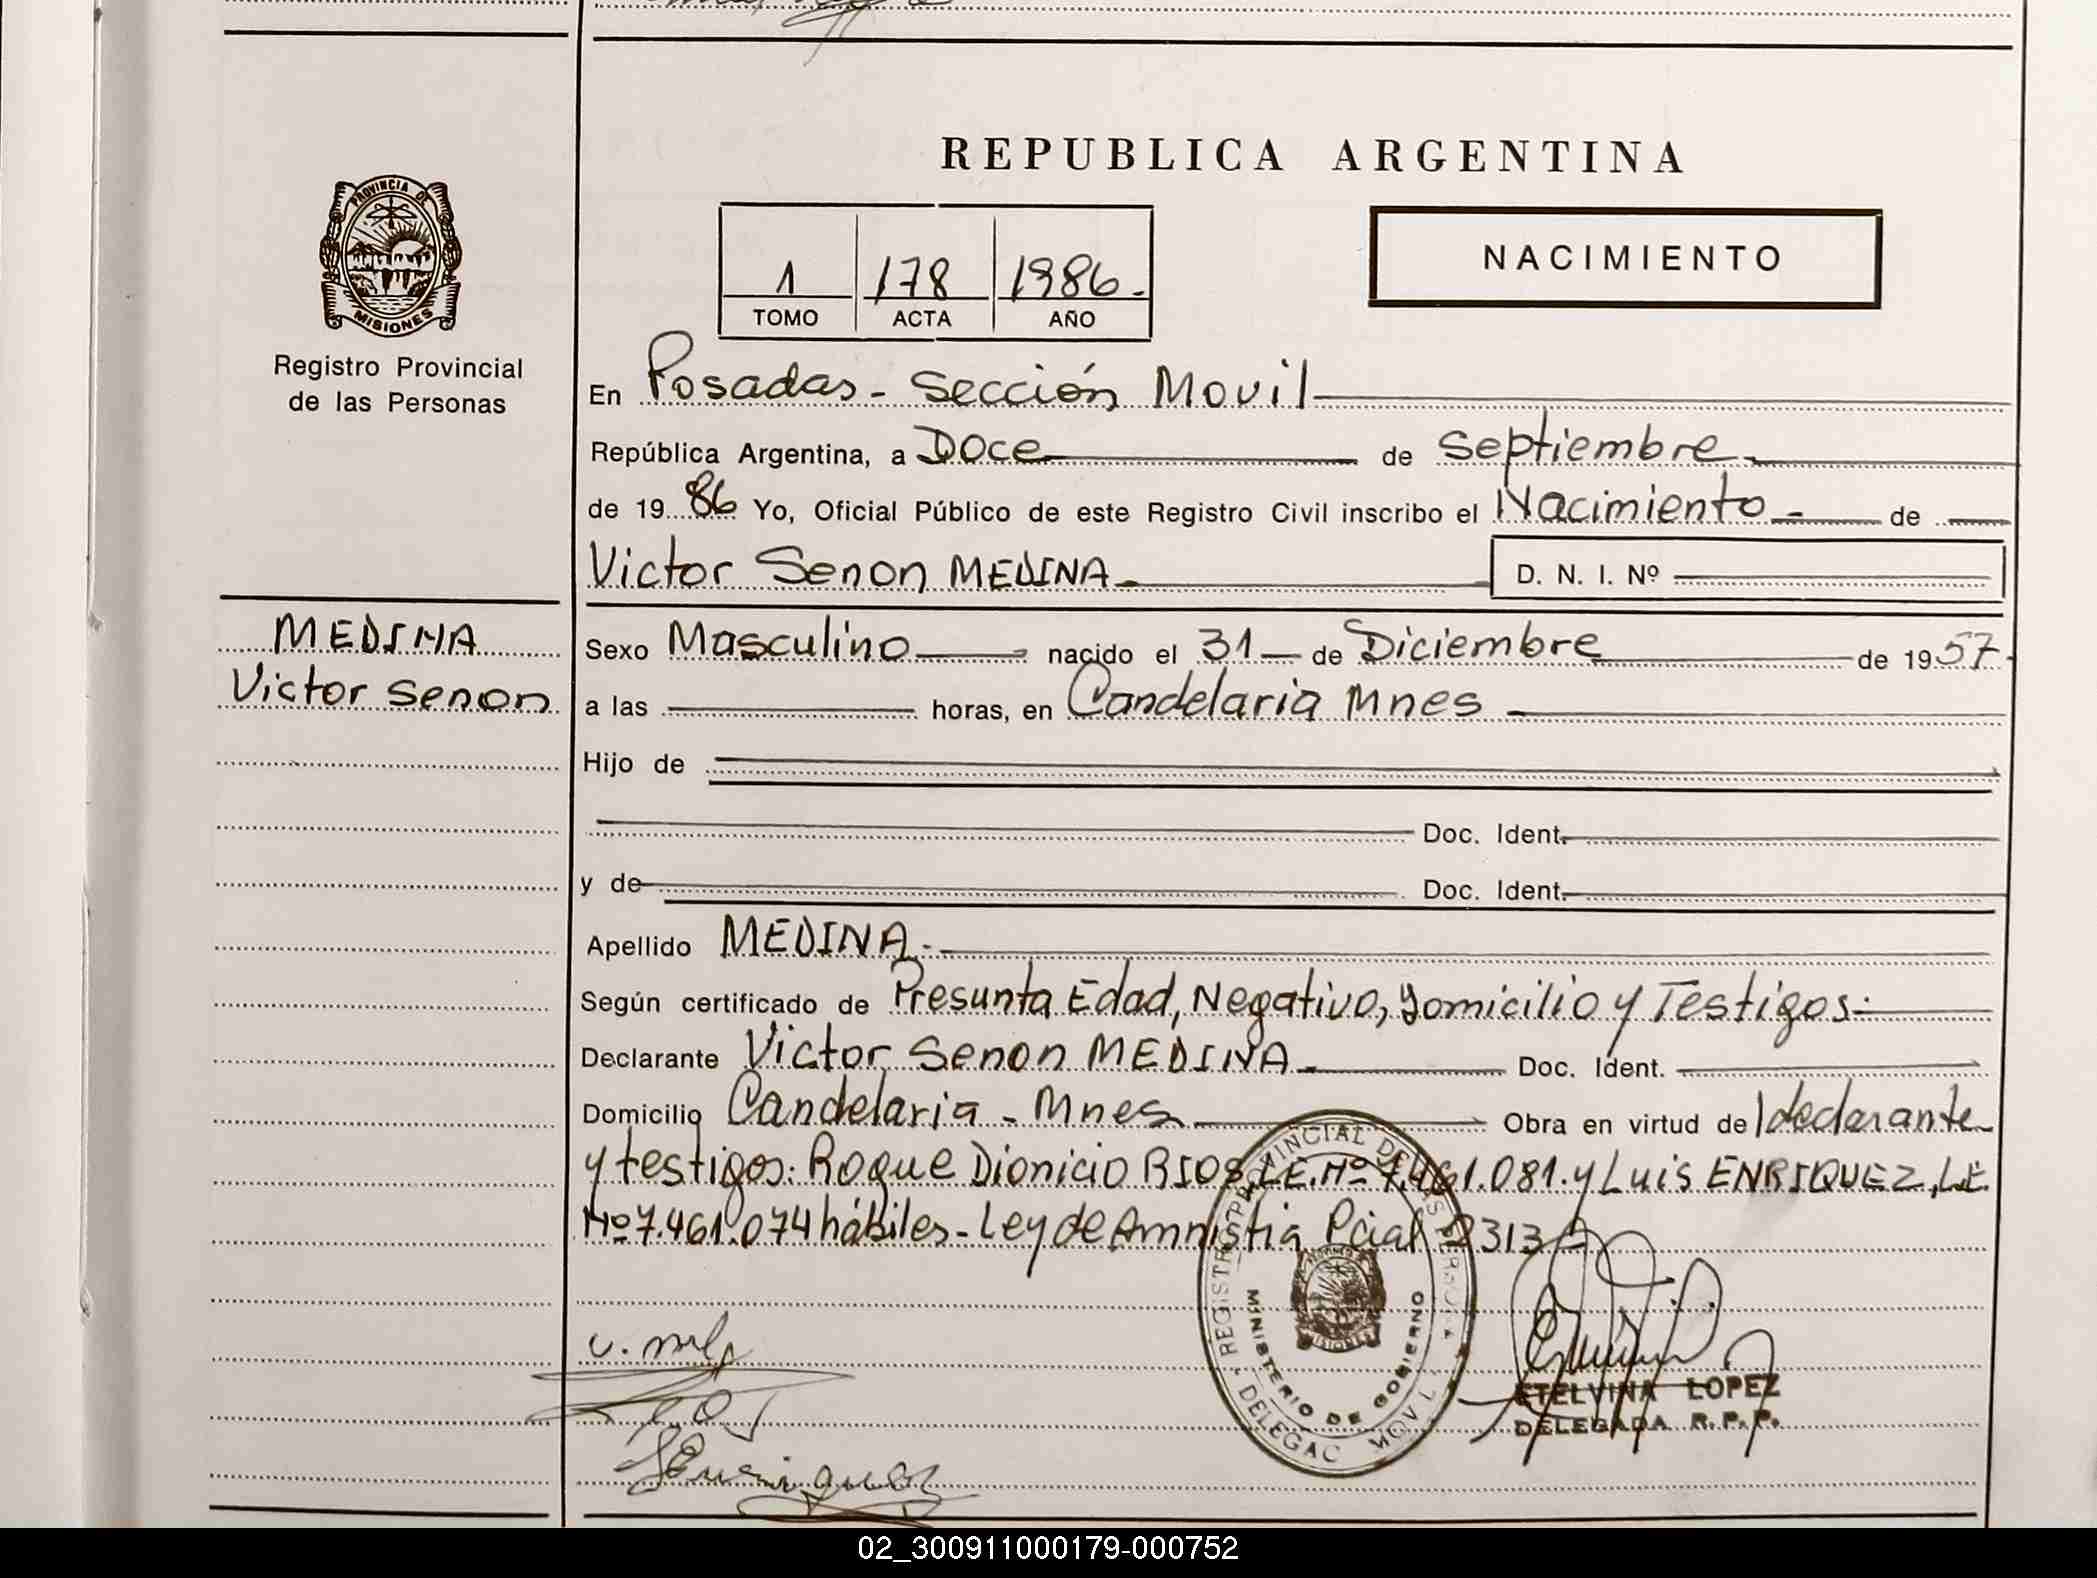 REPUBLICA ARGENTINA
PROVINCIA DE
MISIONES
Registro Provincial
de las Personas
1 178 1986.-
TOMO ACTA AÑO
NACIMIENTO
En Posadas - Sección Movil
República Argentina, a Doce de Septiembre
de 1986 Yo, Oficial Público de este Registro Civil inscribo el Nacimiento - de
Victor Senon MEDINA D. N. I. Nº
MEDINA
Victor Senon
Sexo Masculino nacido el 31 de Diciembre de 1957
a las horas, en Candelaria Mnes
Hijo de
Doc. Ident.
y de Doc. Ident.
Apellido MEDINA.-
Según certificado de Presunta Edad, Negativo, Domicilio y Testigos:
Declarante Victor Senon MEDINA Doc. Ident.
Domicilio Candelaria - Mnes Obra en virtud de declarante
y testigos: Roque Dionicio RIOS, L.E. Nº 7.461.081. y Luis ENRIQUEZ, L.E.
Nº 7.461.074 hábiles - Ley de Amnistia Pcial 2313
REGISTRO PROVINCIAL DE LAS PERSONAS
MINISTERIO DE GOBIERNO
DELEGAC MOVIL
ETELVINA LOPEZ
DELEGADA R. P. P.
02_300911000179-000752